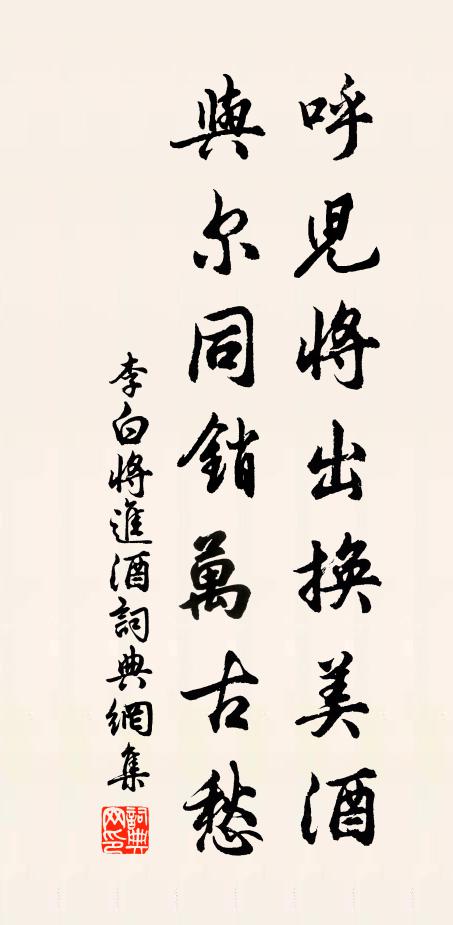 呼兒將出換美酒
與尔同銷萬古愁
李白將進酒詞典網集
詞典網印